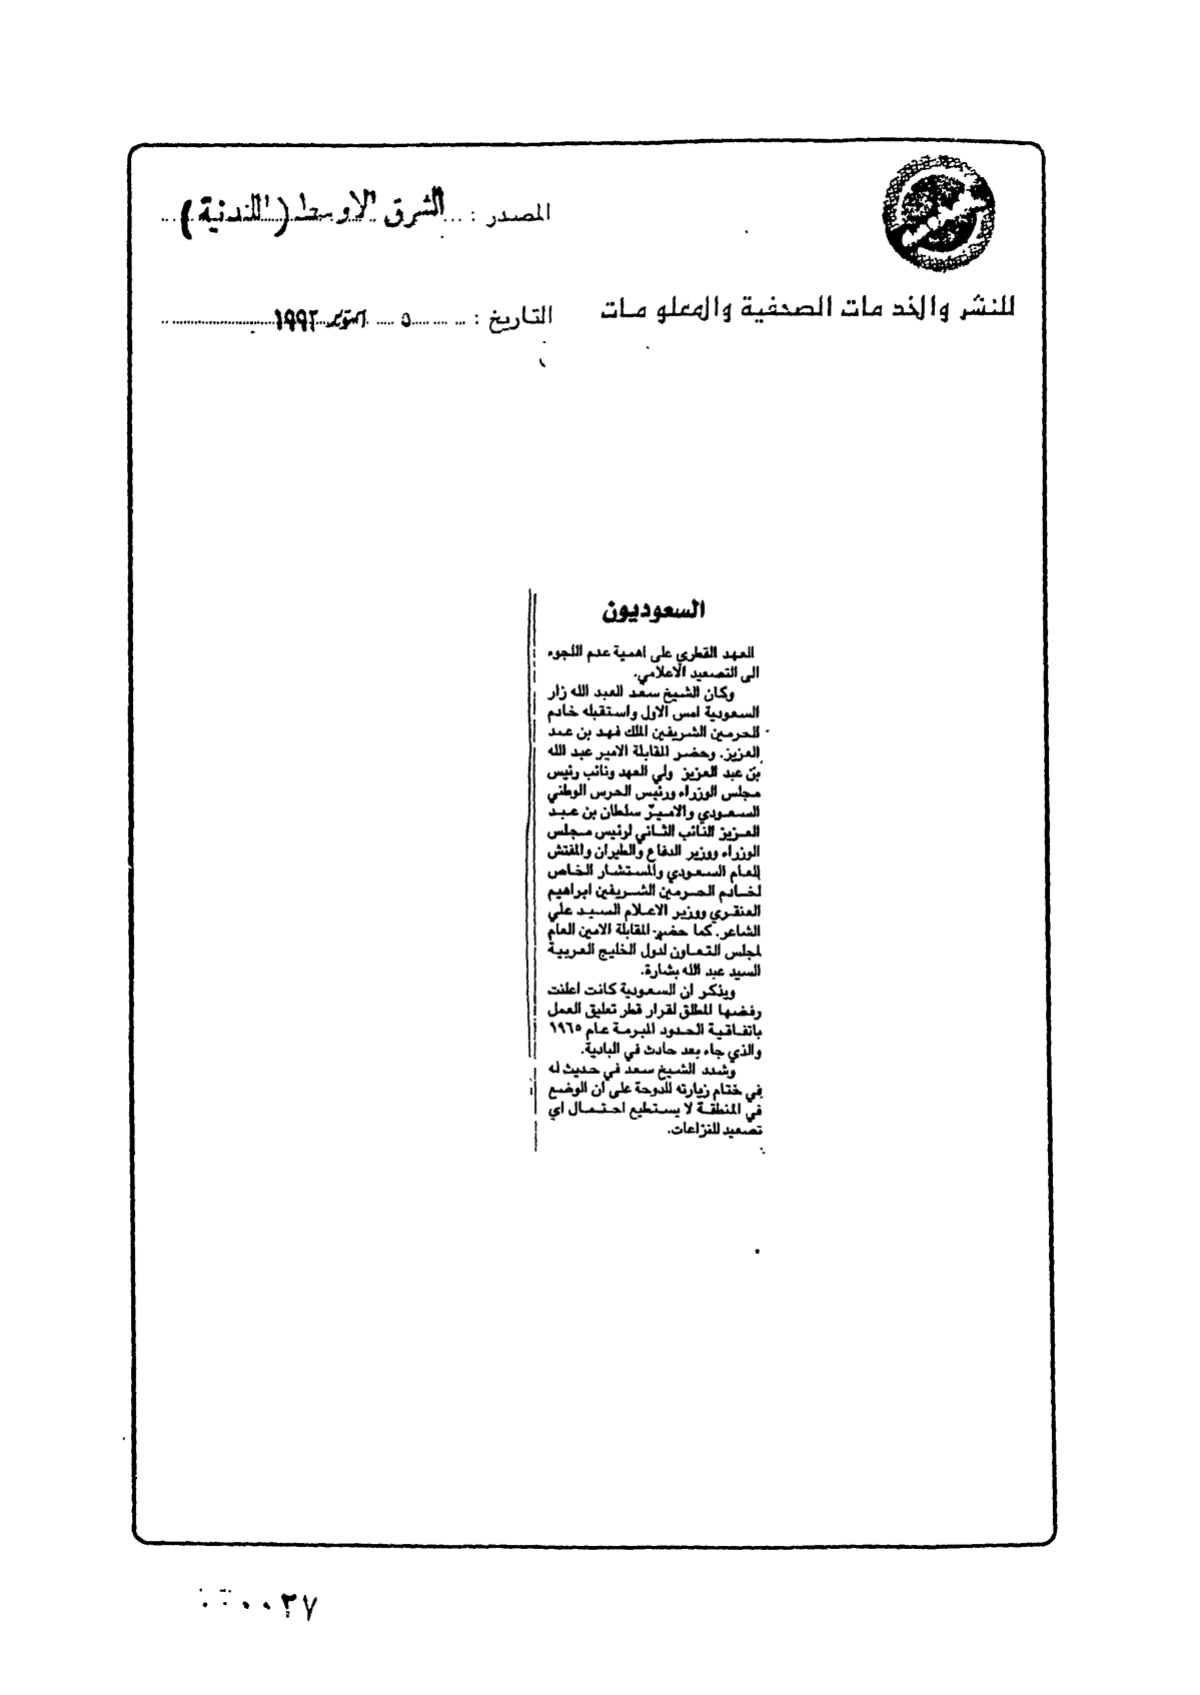 المصدر : الشرق الاوسط (اللندنية)
للنشر والخدمات الصحفية والمعلومات
التاريخ : ٥ اكتوبر ١٩٩٢
السعوديون
العهد القطري على اهمية عدم اللجوء
الى التصعيد الاعلامي.
وكان الشيخ سعد العبد الله زار
السعودية امس الاول واستقبله خادم
الحرمين الشريفين الملك فهد بن عبد
العزيز. وحضر المقابلة الامير عبد الله
بن عبد العزيز ولي العهد ونائب رئيس
مجلس الوزراء ورئيس الحرس الوطني
السعودي والامير سلطان بن عبد
العزيز النائب الثاني لرئيس مجلس
الوزراء ووزير الدفاع والطيران والمفتش
العام السعودي والمستشار الخاص
لخادم الحرمين الشريفين ابراهيم
العنقري ووزير الاعلام السيد علي
الشاعر. كما حضر المقابلة الامين العام
لمجلس التعاون لدول الخليج العربية
السيد عبد الله بشارة.
ويذكر ان السعودية كانت اعلنت
رفضها المطلق لقرار قطر تعليق العمل
باتفاقية الحدود المبرمة عام ١٩٦٥
والذي جاء بعد حادث في البادية.
وشدد الشيخ سعد في حديث له
في ختام زيارته للدوحة على ان الوضع
في المنطقة لا يستطيع احتمال اي
تصعيد للنزاعات.